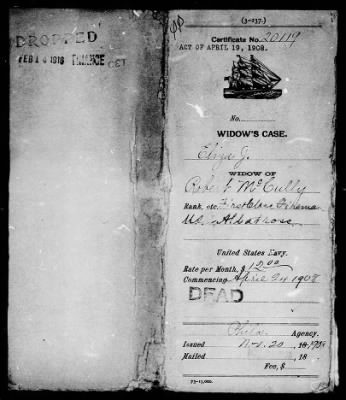 DROPPED
FEB 14 1918 FINANCE CET
(3-237.)
Certificate No. 20119
ACT OF APRIL 19, 1908.
No.
WIDOW'S CASE.
Eliza J.
WIDOW OF
Robert McCully
Rank, etc. First Class Fireman
U.S. Albatross
United States Navy.
Rate per Month, $12.00
Commencing April 24 1908
DEAD
Phila. Agency.
Issued Nov. 20 1908
Mailed , 18
Fee, $